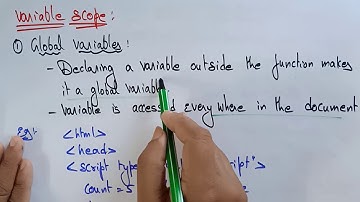 Variable Scope:
① Global variables:
- Declaring a variable outside the function makes
it a global variable.
- Variable is accessed every where in the document
Eg:
<html>
<head>
<script type script"
count=5